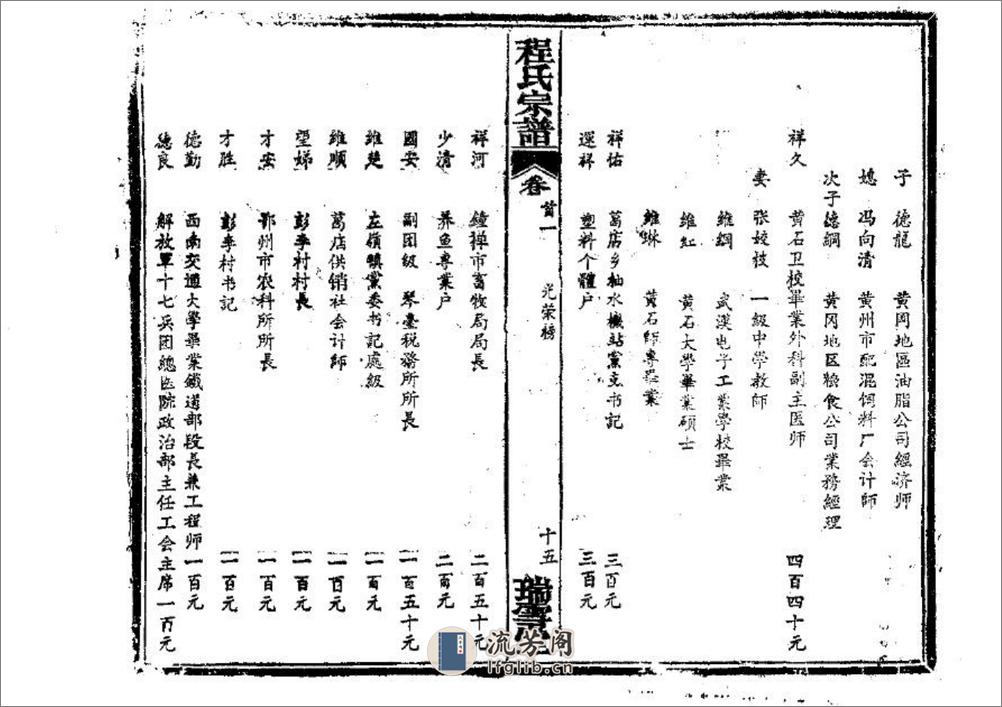 子 德龍 黄冈地區油脂公司經济师
媳 冯向清 黄州市配混饲料厂会计師
次子德嗣 黄冈地区粮食公司業務經理
祥久 黄石卫校畢業外科副主医师 四百四十元
妻 张姣枝 一級中学教師
維綱 武漢电子工業學校畢業
維紅 黄石大學畢業碩士
維琳 黄石師專畢業
祥佑 葛店乡抽水機站黨支书记 三百元
選祥 塑料个體户 三百元
程氏宗譜
卷首一
光荣榜
十五
瑞雲堂
祥河 鐘祥市畜牧局局長 二百五十元
少清 养鱼專業户 二百元
國安 副团級 琴臺税務所所長 一百五十元
維楚 左嶺鎮黨委书記處級 一百元
維順 葛店供销社会计師 一百元
望娣 彭李村村長 一百元
才安 鄂州市农科所所長 一百元
才胜 彭李村书記 一百元
德勤 西南交通大學畢業鐵道部段長兼工程师 一百元
德良 解放軍十七兵团總医院政治部主任工会主席 一百元
流芳阁
lfglib.cn